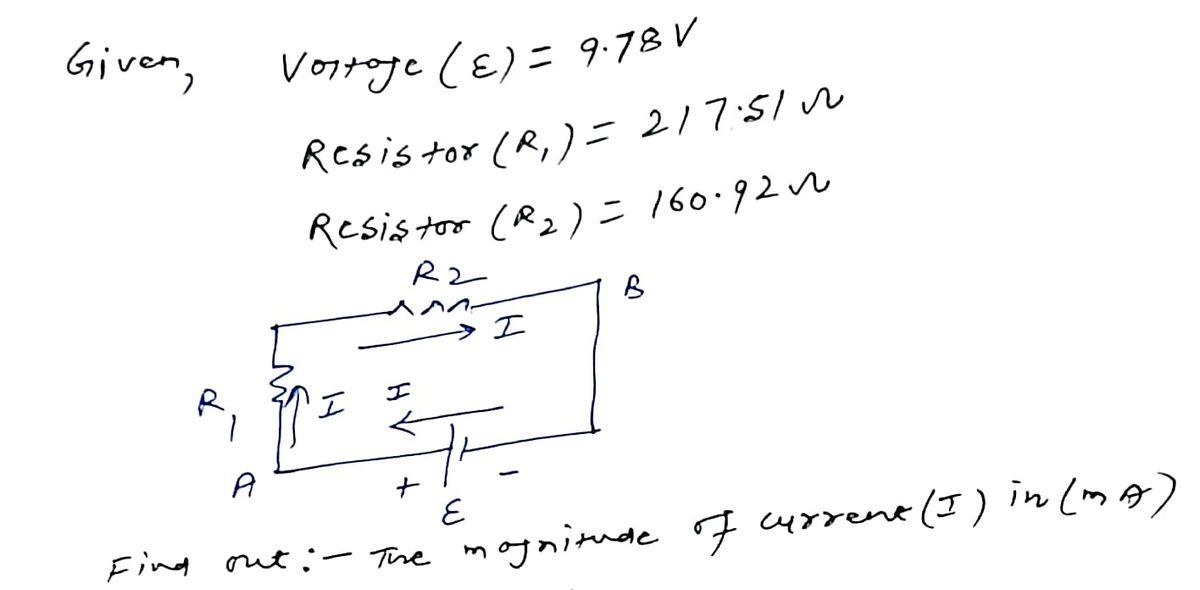 Given, Voltage (ε) = 9.78 V
Resistor (R₁) = 217.51 Ω
Resistor (R₂) = 160.92 Ω
R2
B
I
R₁
I
I
A
+
-
ε
Find out :- The magnitude of current (I) in (mA)